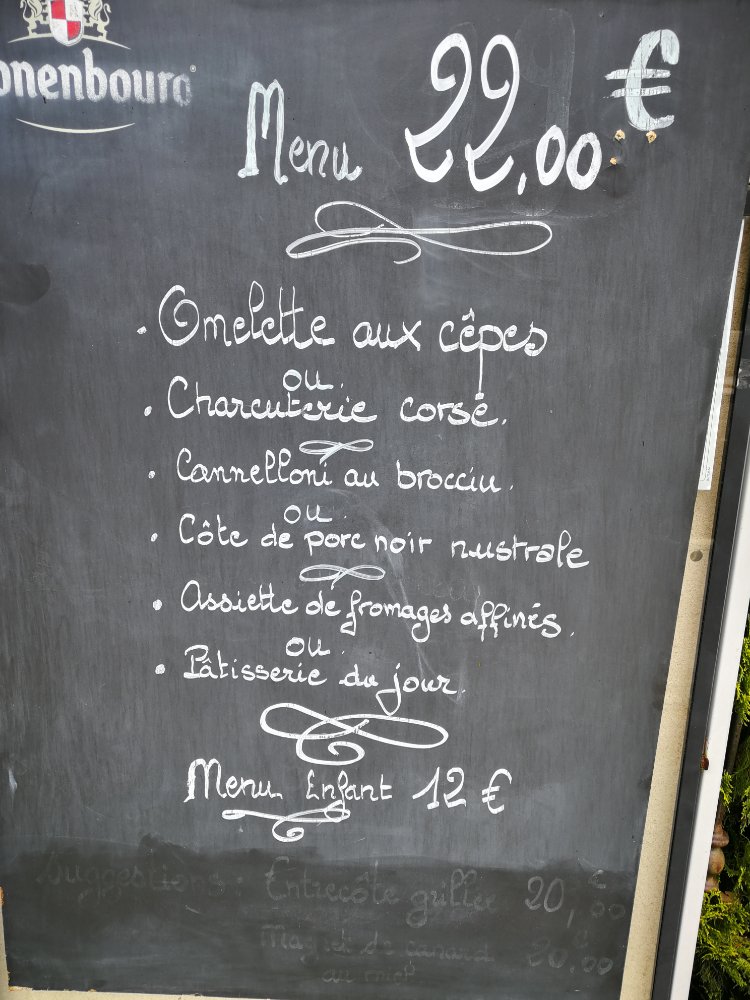 onenbourg
Menu 22,00 €
. Omelette aux cêpes
ou.
. Charcuterie corse.
. Cannelloni au brocciu.
ou.
. Côte de porc noir nustrale
. Assiette de fromages affinés.
ou.
. Pâtisserie du jour.
Menu Enfant 12 €
Suggestions: Entrecôte grillée 20,00 €
Magret de canard 20,00 €
au miel